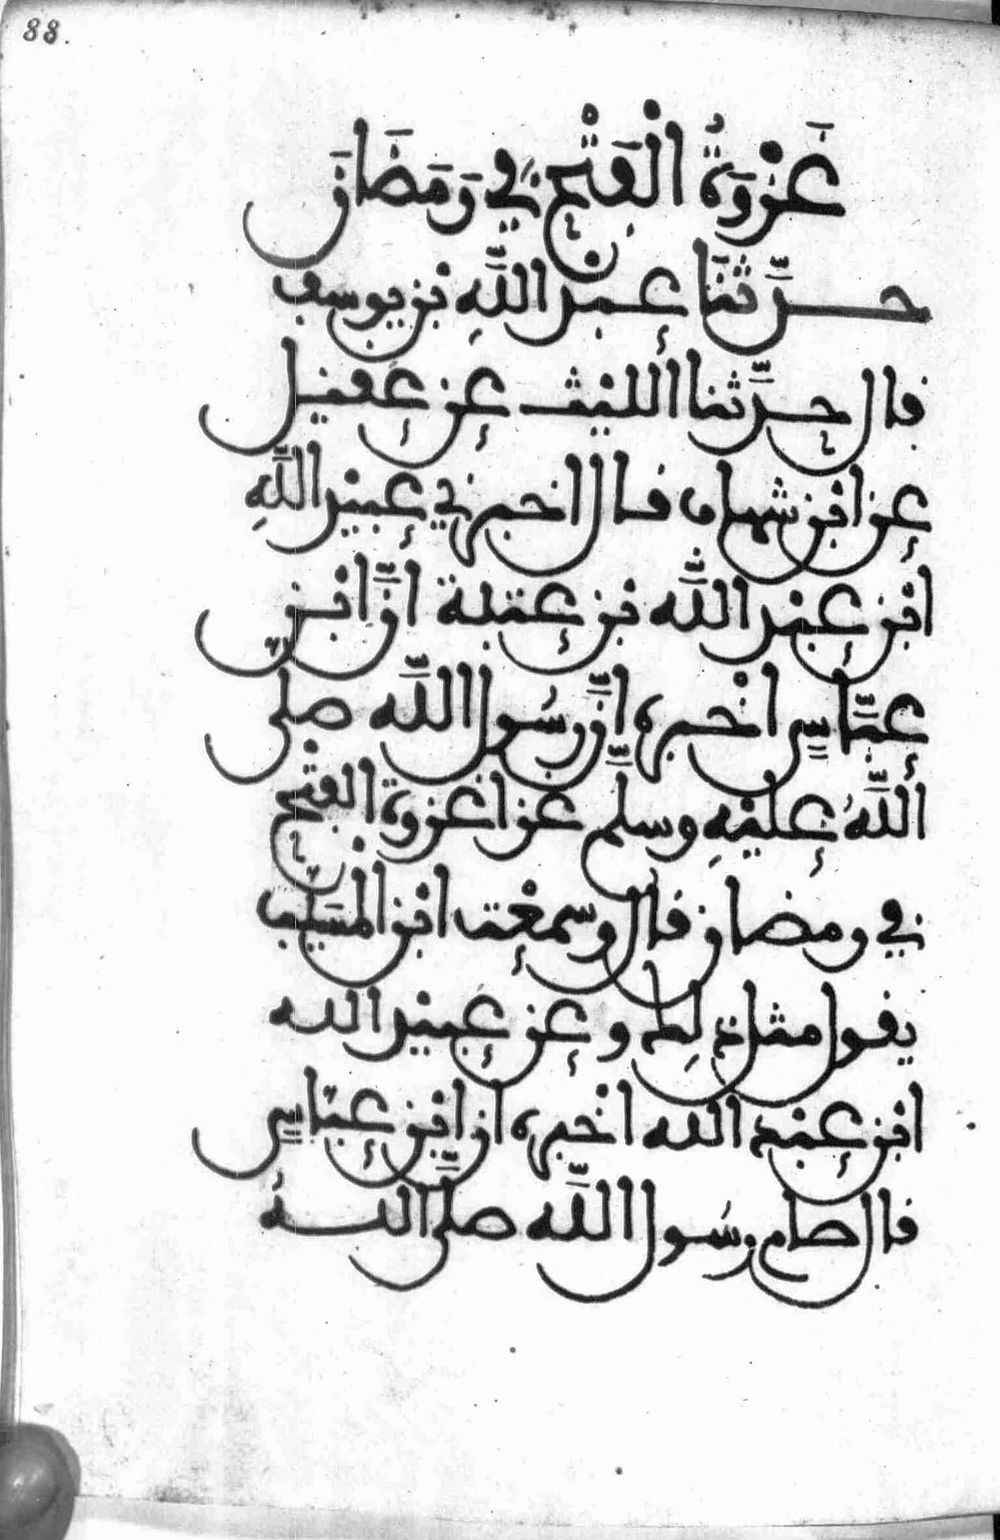 88.
غَزْوَةُ الْفَتْحِ فِي رَمَضَانَ
حدَّثنَا عبد اللَّهِ بن يوسف
قال حدَّثنا الليث عن عُقيل
عن ابن شهاب قال اخبرني عبيد اللَّهِ
ابن عبد اللَّه بن عتبة انَّ ابن
عبَّاس اخْبره انَّ رسُول اللَّه صلى
اللَّهُ عليْهِ وسلَّم غزا غزوة الفتْح
في رمضان قال وسمعْت ابن المسَيِّب
يقول مثل ذلِك وعن عبيْد الله
ابن عبْد الله اخْبره ان ابن عبّاس
قال صام رسُول اللَّه صلَّى اللهُ